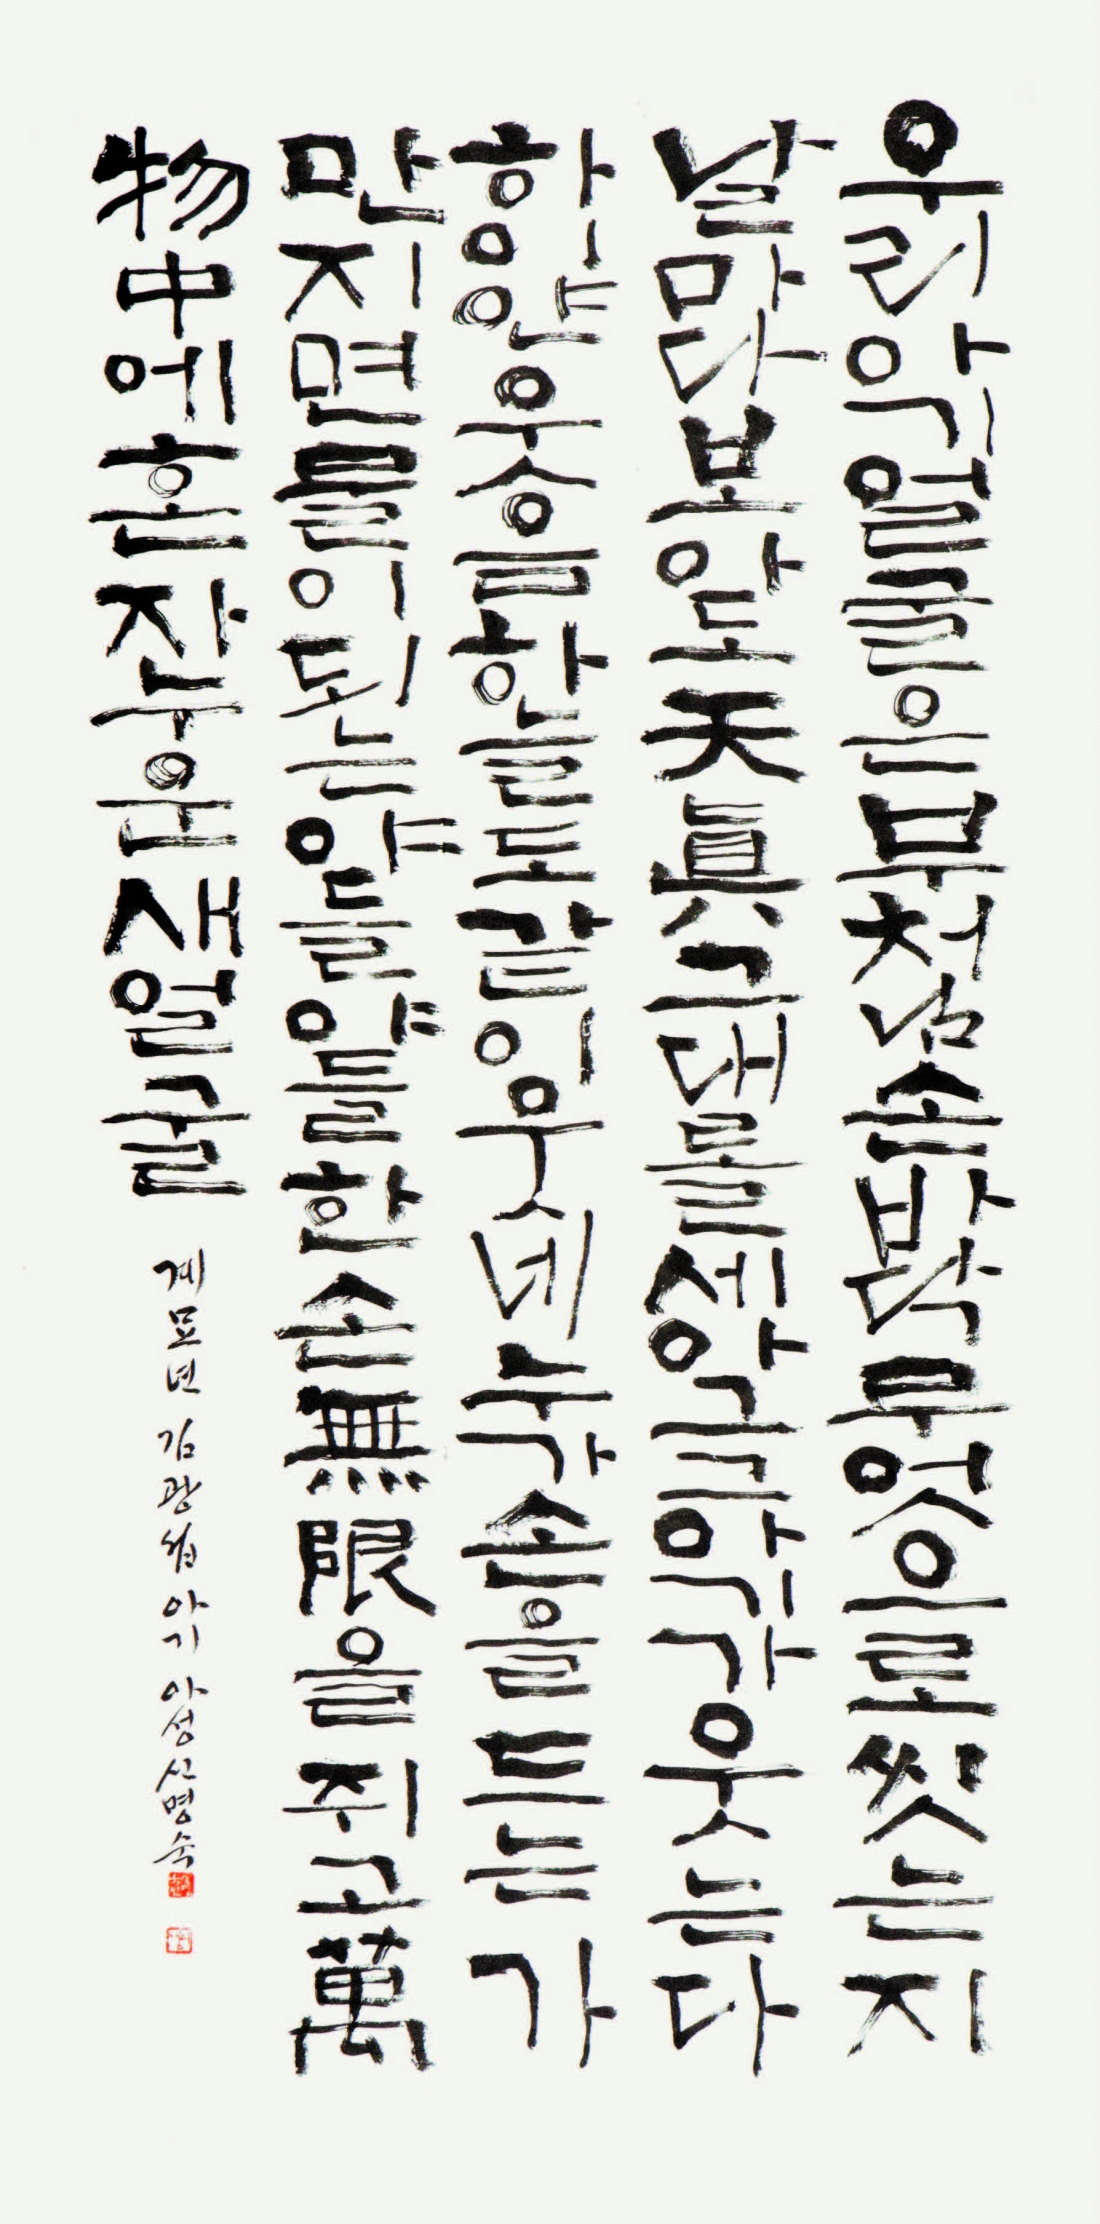 우리아기얼굴은부처님손바닥무엇으로씻는지
날마다보아도天眞그대롤세아그그아기가웃는다
하이얀웃음하늘도같이웃네누가손을드는가
만지면물이되는야들야들한손無限을쥐고萬
物中에혼자누운새얼굴
계묘년 김광섭 아기 아성 신명숙